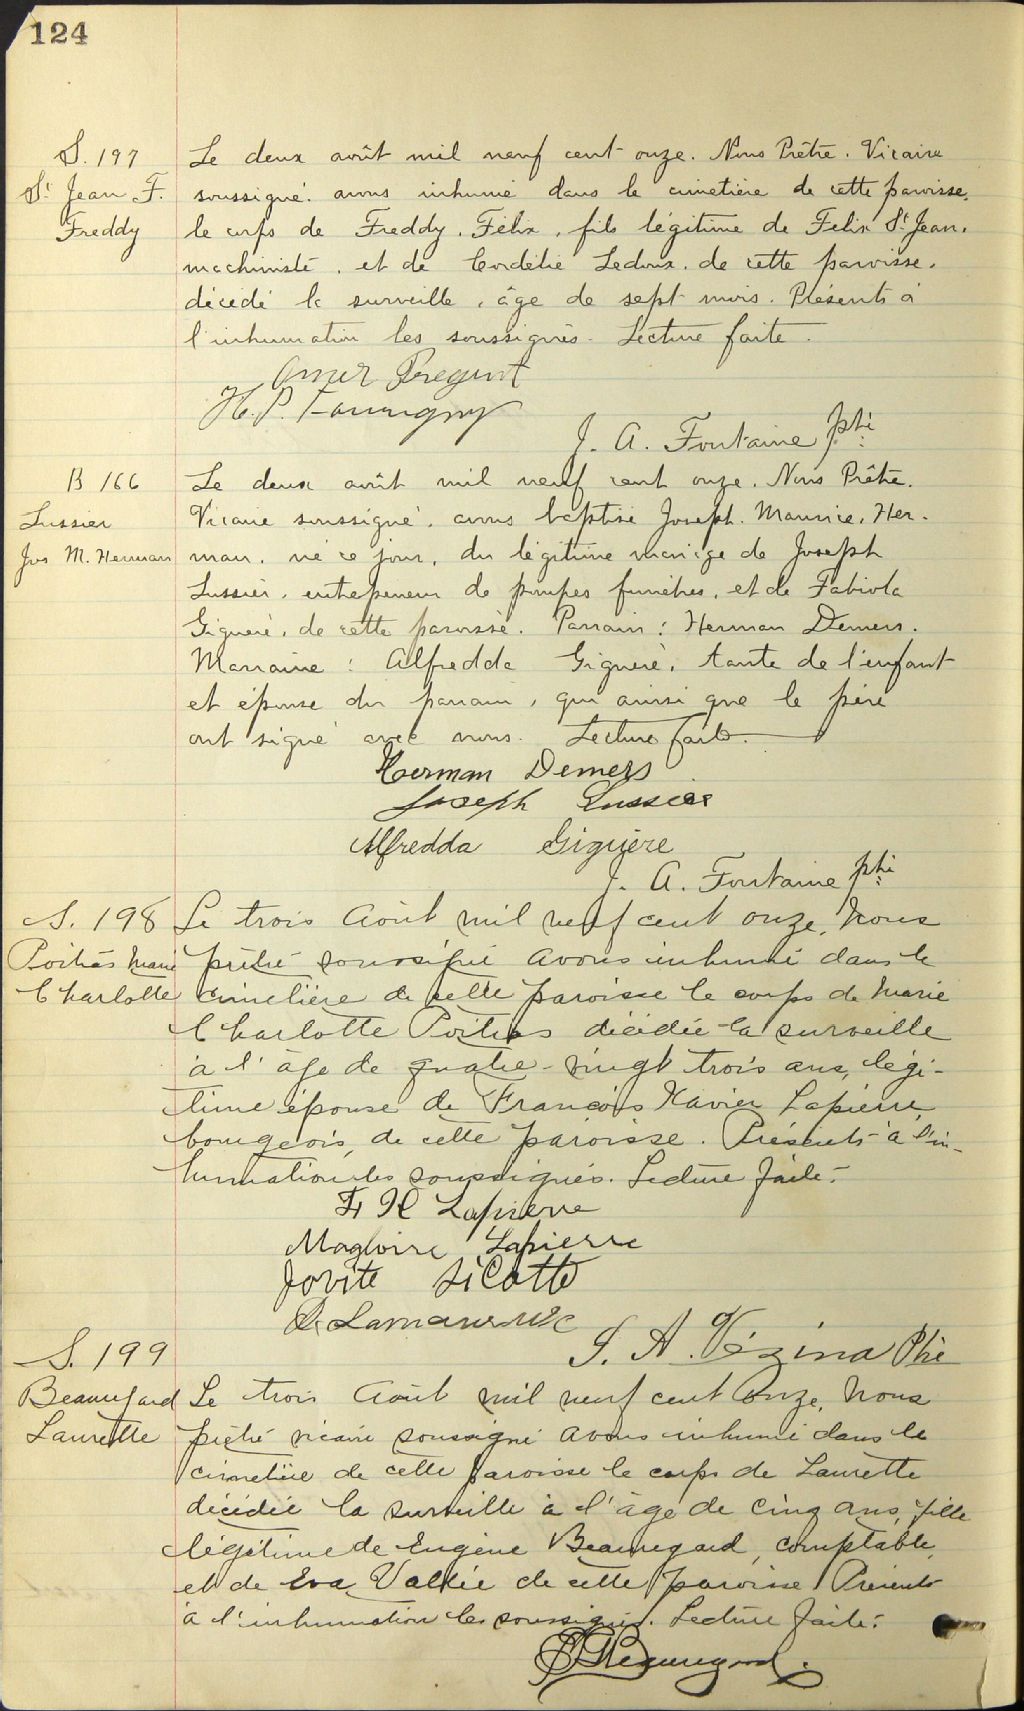 124
S. 197
St Jean F.
Freddy
Le deux août mil neuf cent onze. Nous Prêtre. Vicaire
soussigné. avons inhumé dans le cimetière de cette paroisse,
le corps de Freddy, Félix, fils légitime de Felix St Jean,
machiniste, et de Cordélie Ledoux, de cette paroisse,
décédé la surveille, âge de sept mois. Présents à
l'inhumation les soussignés. Lecture faite.
H. P.
J. A. Fontaine ptre
B 166
Lussier
Jos M. Herman
Le deux août mil neuf cent onze. Nous Prêtre.
Vicaire soussigné, avons baptisé Joseph. Maurice. Her-
man, né ce jour, du légitime mariage de Joseph
Lussier, entrepreneur de pompes funèbres, et de Fabiola
Giguère, de cette paroisse. Parrain: Herman Demers.
Marraine: Alfredda Giguère, tante de l'enfant
et épouse du parrain, qui ainsi que le père
ont signé avec nous. Lecture faite.
Herman Demers
Joseph Lussier
Alfredda Giguère
J. A. Fontaine ptre
S. 198
Poitras Marie
Charlotte
Le trois Août mil neuf cent onze, Nous
prêtre soussigné avons inhumé dans le
cimetière de cette paroisse le corps de Marie
Charlotte Poitras décédée la surveille
à l'âge de quatre-vingt trois ans, légi-
time épouse de François Xavier Lapierre,
bourgeois, de cette paroisse. Présents à l'in-
humation les soussignés. Lecture faite.
F X Lapierre
Magloire Lapierre
Jovite Sicotte
J. A. Vézina Ptre
S. 199
Beauregard
Laurette
Le trois Août mil neuf cent onze, Nous
prêtre vicaire soussigné avons inhumé dans le
cimetière de cette paroisse le corps de Laurette
décédée la surveille à l'âge de cinq ans, fille
légitime de Eugène Beauregard, comptable,
et de Eva Vallée de cette paroisse Présents
à l'inhumation les soussignés. Lecture faite.
Beauregard.